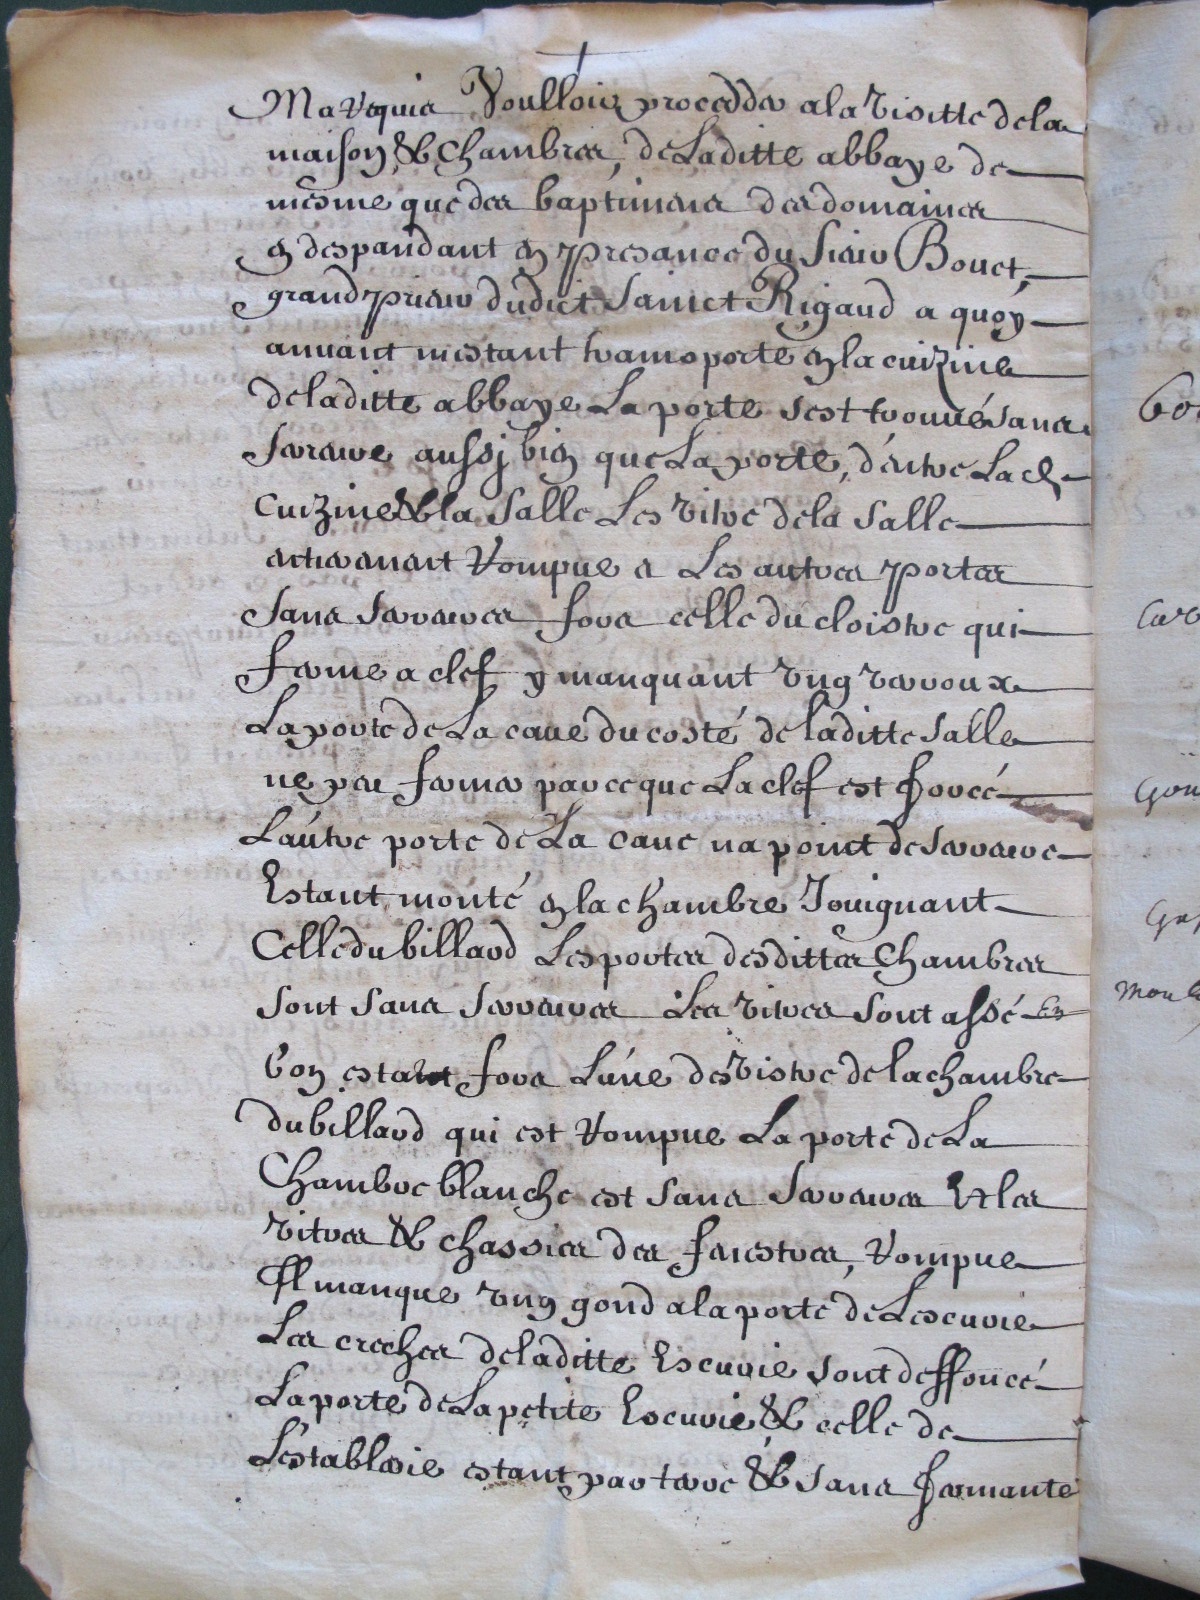 Ma requis voulloir procedder a la visitte de la
maison & chambres de laditte abbaye de
mesme que des baptimens des domaines
en despandant en presance du sieur Bouet
grand prieur dudict Sainct Rigaud a quoy
anuant mestant transporte en la cuizine
de laditte abbaye La porte sest trouué sans
serrure aussj bien que La porte, d'entre La d
cuizine & la salle Les vitre de la salle
entierement rompue & Les autres portes
sans serrures fors celle du cloistre qui
ferme a clef y manquant vng verroux
La porte de La caue du costé de laditte salle
ne peu fermer parce que La clef est forcé
Lautre porte de La caue na point de serrure
Estant monté en la chambre Joignant
Celle du billard Les portes desdittes Chambres
sont sans serrures Les vitres sont assé En
bon estat fors L'une des vistre de la chambre
du billard qui est rompue La porte de La
Chambre blanche est sans serrures Et les
vitres & chassies des fenestres, rompue
Il manque vng gond a la porte de Lescurie
Les creches de laditte Escurie sont deffoncé
La porte de La petite Escurie & celle de
L'establerie estant par terre & sans fermante